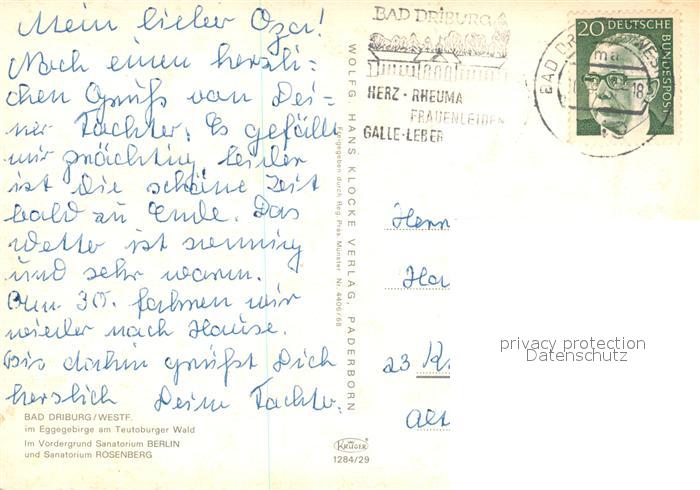 Mein lieber Opa!
Noch einen herzli-
chen Gruß von Dei-
ner Tochter. Es gefällt
mir prächtig, leider
ist die schöne Zeit
bald zu Ende. Das
Wetter ist sonnig
und sehr warm.
Am 30. fahren wir
wieder nach Hause.
Bis dahin grüßt Dich
herzlich Deine Tochter.
BAD DRIBURG/WESTF.
im Eggegebirge am Teutoburger Wald
Im Vordergrund Sanatorium BERLIN
und Sanatorium ROSENBERG
WOLFG. HANS KLOCKE VERLAG PADERBORN
Freigegeben durch Reg. Präs. Münster Nr. 4406/68
KRÜGER
1284/29
BAD DRIBURG
HERZ - RHEUMA
FRAUENLEIDEN
GALLE - LEBER
20 DEUTSCHE
BUNDESPOST
BAD DR WEST
18
Herrn
Ha
23 K
Alt
privacy protection
Datenschutz